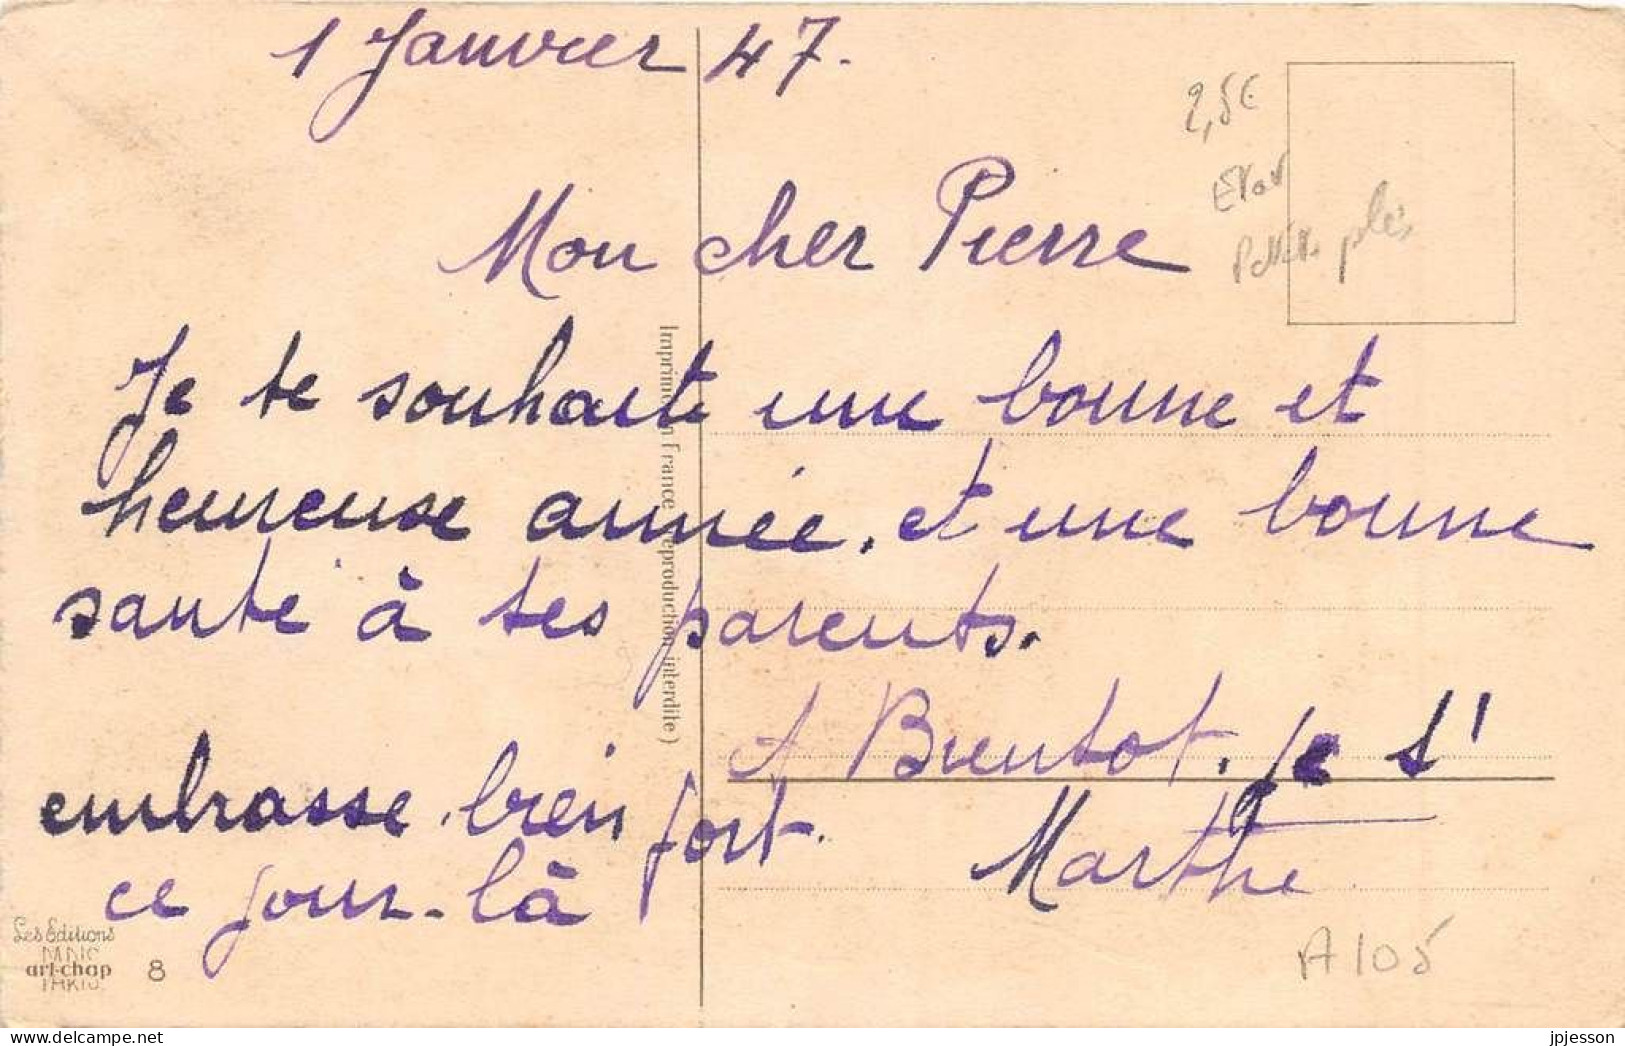 1 Janvier 47.
2,5€
Mon cher Pierre
plis
Je te souhaite une bonne et
heureuse année. et une bonne
santé à tes parents.
A Bientot. je t'
embrasse bien fort.
Marthe
ce jour-là
Imprimé en France reproduction interdite )
Les Editions
art-chap
PARIS
8
A105
delcampe.net
jpjesson